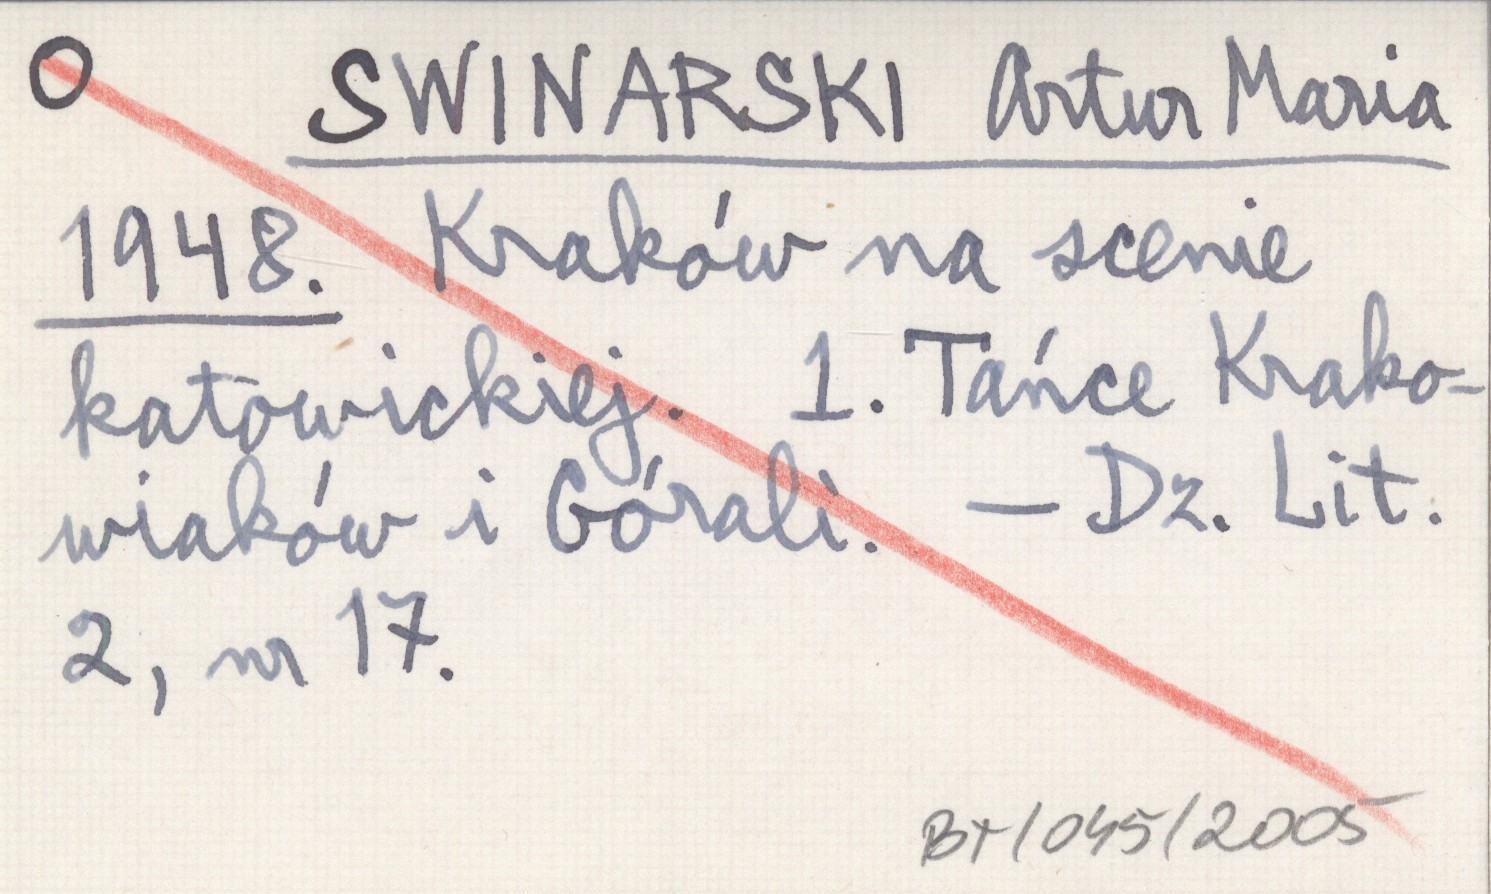 O SWINARSKI Artur Maria
1948. Kraków na scenie
katowickiej. 1. Tańce Krako-
wiaków i Górali. — Dz. Lit.
2, nr 17.
BT/045/2005